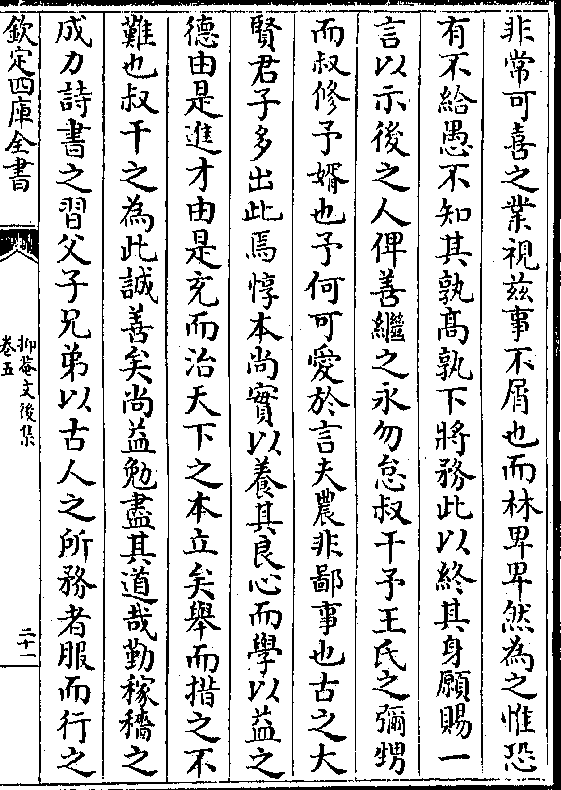 非常可喜之業視兹事不屑也而林畀畀然為之惟恐
有不給愚不知其孰髙孰下將務此以終其身願賜一
言以示後之人俾善繼之永勿怠叔干予王氏之彌甥
而叔修予婿也予何可愛於言夫農非鄙事也古之大
賢君子多出此焉惇本尚實以養其良心而學以益之
德由是進才由是充而治天下之本立矣舉而措之不
難也叔干之為此誠善矣尚益勉盡其道哉勤稼穡之
成力詩書之習父子兄弟以古人之所務者服而行之
欽定四庫全書
抑菴文後集
卷五
二十一